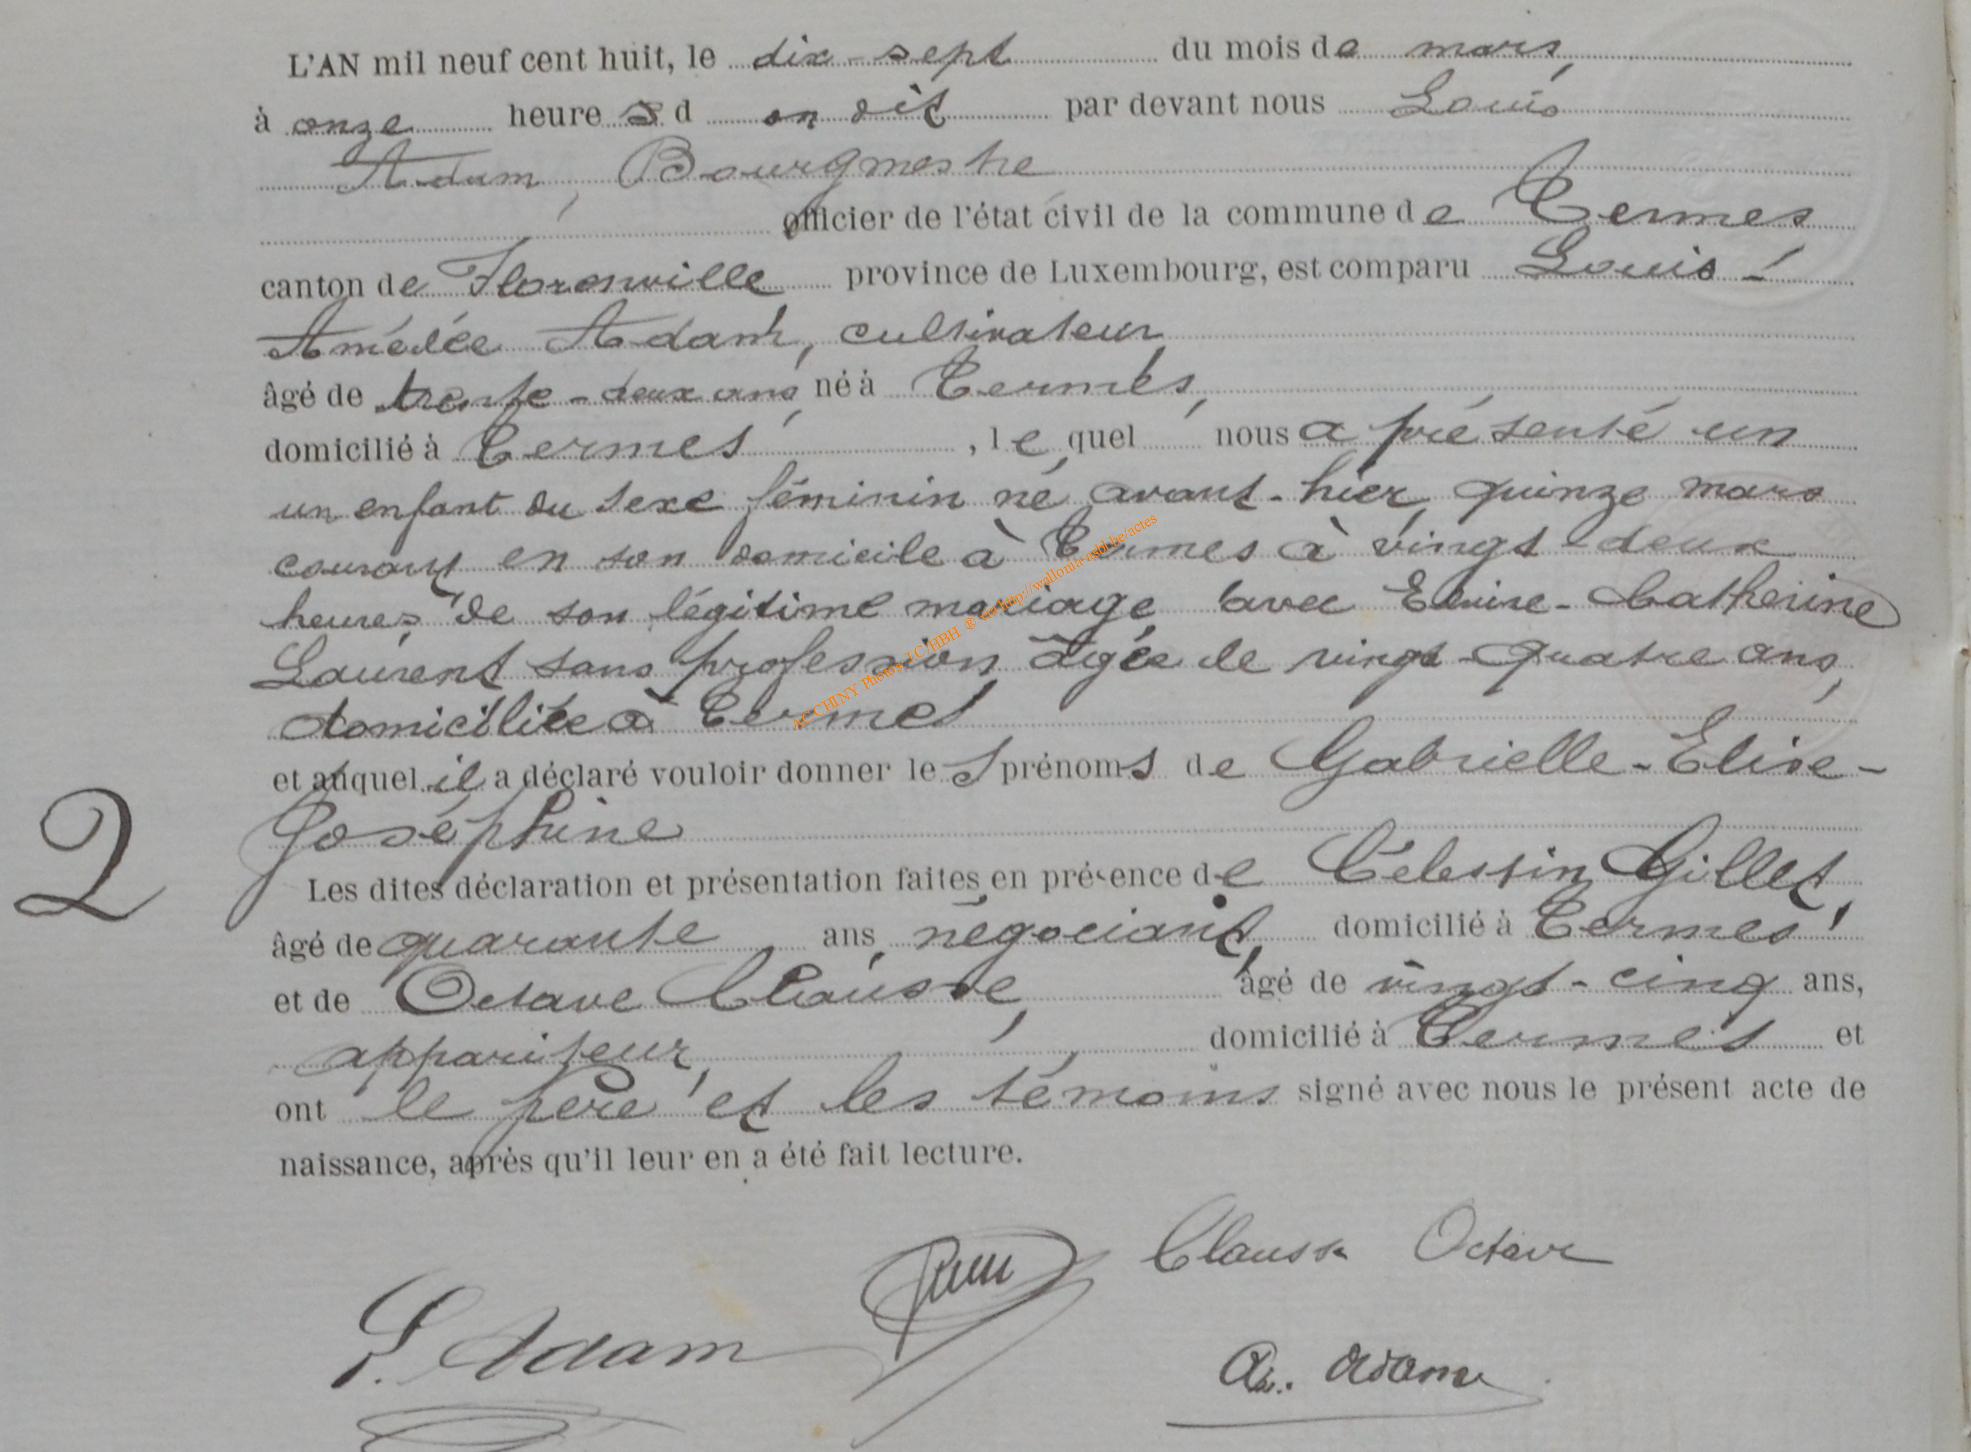 L'AN mil neuf cent huit, le dix-sept du mois de mars,
à onze heures d on dit par devant nous Louis
Adam, Bourgmestre
officier de l'état civil de la commune de Termes,
canton de Florenville province de Luxembourg, est comparu Louis-
Amédée Adam, cultivateur,
âgé de trente-deux ans, né à Termes,
domicilié à Termes, lequel nous a présenté un
un enfant du sexe féminin né avant-hier, quinze mars
courant, en son domicile à Termes à vingt-deux
heures, de son légitime mariage avec Catherine
Laurent sans profession, âgée de vingt-quatre ans,
domiciliée à Termes
et auquel il a déclaré vouloir donner les prénoms de Gabrielle-Elise-
Joséphine
2
Les dites déclaration et présentation faites en présence de Célestin Gillet,
âgé de quarante ans, négociant, domicilié à Termes,
et de Octave Clausse, âgé de vingt-cinq ans,
appariteur, domicilié à Termes et
ont le père et les témoins signé avec nous le présent acte de
naissance, après qu'il leur en a été fait lecture.
Clausse Octave
L. Adam
Adam
AC CHINY Photos JC/HBH @ http://wallonia-asbl.be/actes